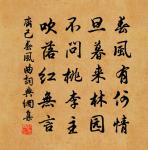 春風有何情
旦暮來林園
不問桃李主
吹落紅無言
齊己春風曲詞典網